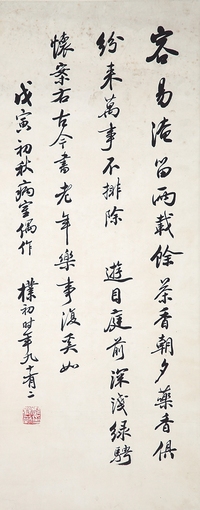 容易淹留兩載餘茶香朝夕藥香俱
紛來萬事不排除 遊目庭前深淺綠騁
懷案右古今書老年樂事復奚如
戊寅初秋病室偶作 樸初时年九十有二